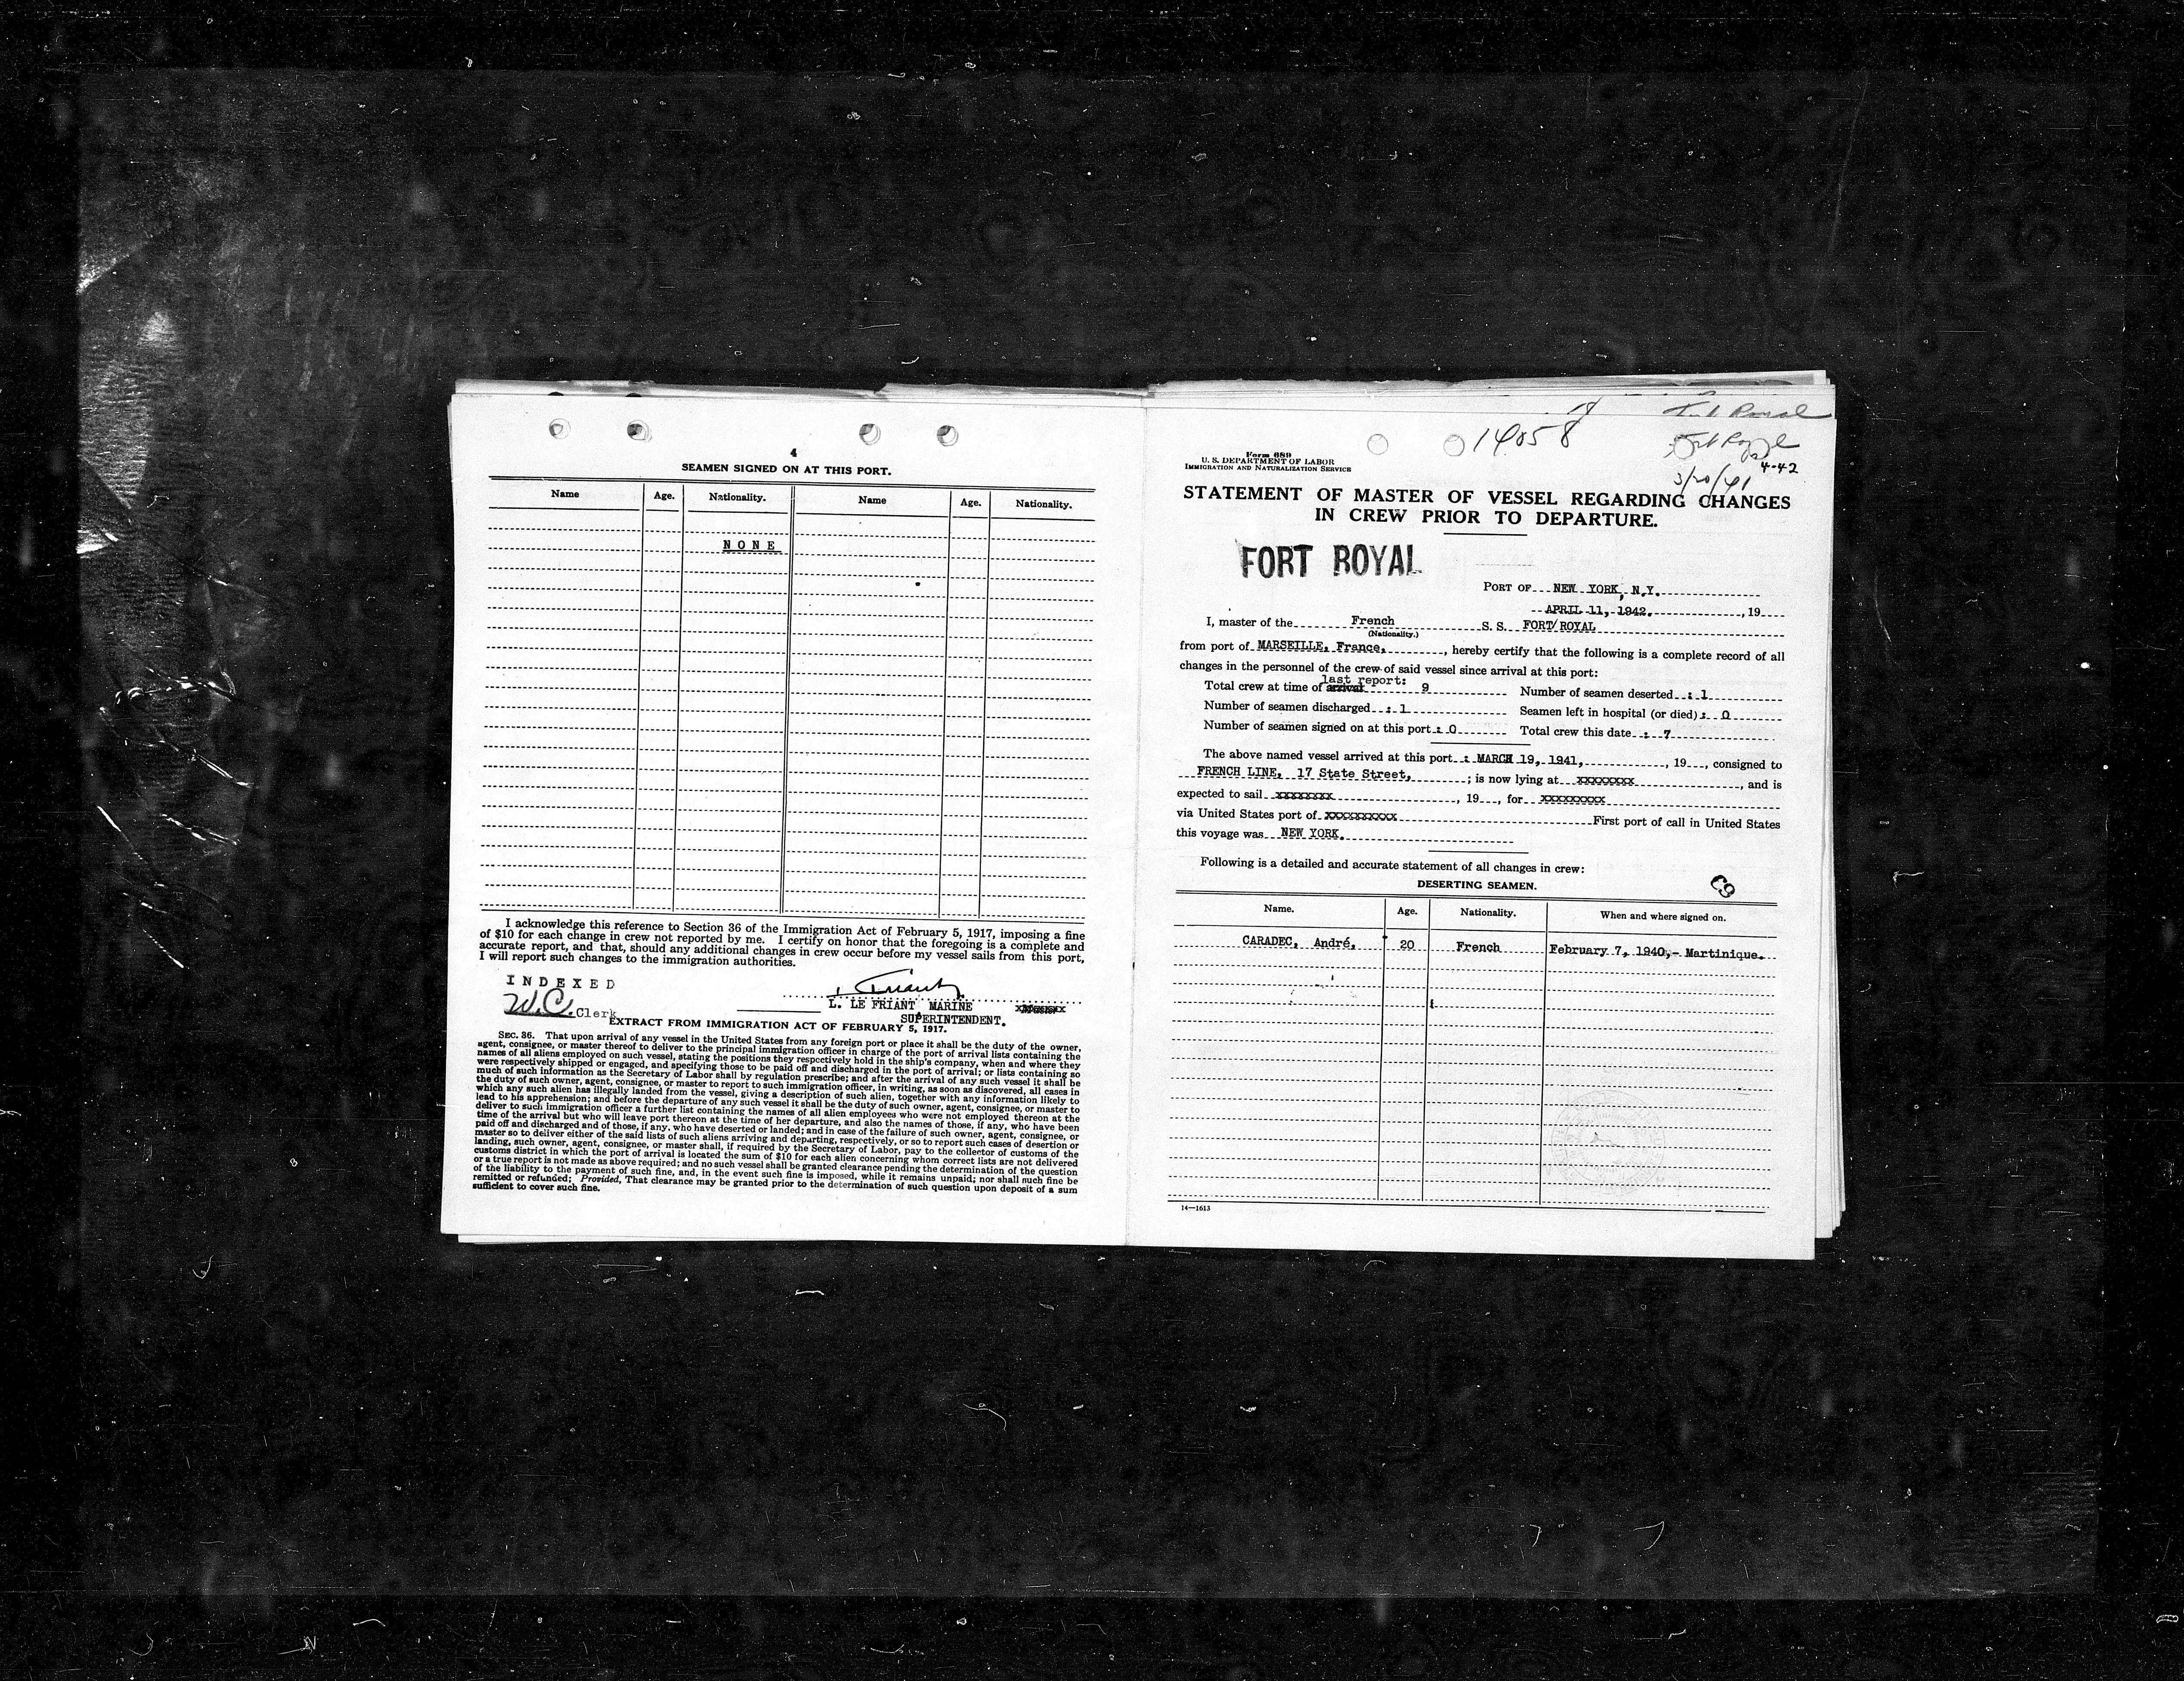 4
SEAMEN SIGNED ON AT THIS PORT.
Name Age. Nationality. Name Age. Nationality.
NONE
I acknowledge this reference to Section 36 of the Immigration Act of February 5, 1917, imposing a fine
of $10 for each change in crew not reported by me. I certify on honor that the foregoing is a complete and
accurate report, and that, should any additional changes in crew occur before my vessel sails from this port,
I will report such changes to the immigration authorities.
INDEXED
W.C. Clerk
L. LE FRIANT MARINE
SUPERINTENDENT.
EXTRACT FROM IMMIGRATION ACT OF FEBRUARY 5, 1917.
SEC. 36. That upon arrival of any vessel in the United States from any foreign port or place it shall be the duty of the owner,
agent, consignee, or master thereof to deliver to the principal immigration officer in charge of the port of arrival lists containing the
names of all aliens employed on such vessel, stating the positions they respectively hold in the ship's company, when and where they
were respectively shipped or engaged, and specifying those to be paid off and discharged in the port of arrival; or lists containing so
much of such information as the Secretary of Labor shall by regulation prescribe; and after the arrival of any such vessel it shall be
the duty of such owner, agent, consignee, or master to report to such immigration officer, in writing, as soon as discovered, all cases in
which any such alien has illegally landed from the vessel, giving a description of such alien, together with any information likely to
lead to his apprehension; and before the departure of any such vessel it shall be the duty of such owner, agent, consignee, or master to
deliver to such immigration officer a further list containing the names of all alien employees who were not employed thereon at the
time of the arrival but who will leave port thereon at the time of her departure, and also the names of those, if any, who have been
paid off and discharged and of those, if any, who have deserted or landed; and in case of the failure of such owner, agent, consignee, or
master so to deliver either of the said lists of such aliens arriving and departing, respectively, or so to report such cases of desertion or
landing, such owner, agent, consignee, or master shall, if required by the Secretary of Labor, pay to the collector of customs of the
customs district in which the port of arrival is located the sum of $10 for each alien concerning whom correct lists are not delivered
or a true report is not made as above required; and no such vessel shall be granted clearance pending the determination of the question
of the liability to the payment of such fine, and, in the event such fine is imposed, while it remains unpaid; nor shall such fine be
remitted or refunded; Provided, That clearance may be granted prior to the determination of such question upon deposit of a sum
sufficient to cover such fine.
14058
Fort Royal
4-42
3/20/41
Form 689
U. S. DEPARTMENT OF LABOR
IMMIGRATION AND NATURALIZATION SERVICE
STATEMENT OF MASTER OF VESSEL REGARDING CHANGES
IN CREW PRIOR TO DEPARTURE.
FORT ROYAL
PORT OF NEW YORK, N.Y.
APRIL 11, 1942. , 19
I, master of the French S. S. FORT/ROYAL
(Nationality.)
from port of MARSEILLE, France, , hereby certify that the following is a complete record of all
changes in the personnel of the crew of said vessel since arrival at this port:
last report:
Total crew at time of arrival 9 Number of seamen deserted : 1
Number of seamen discharged : 1 Seamen left in hospital (or died) : 0
Number of seamen signed on at this port : 0 Total crew this date : 7
The above named vessel arrived at this port : MARCH 19, 1941, , 19 , consigned to
FRENCH LINE, 17 State Street, ; is now lying at xxxxxxxx , and is
expected to sail xxxxxxxx , 19 , for xxxxxxxxx
via United States port of xxxxxxxxxx First port of call in United States
this voyage was NEW YORK.
Following is a detailed and accurate statement of all changes in crew:
DESERTING SEAMEN.
Name. Age. Nationality. When and where signed on.
CARADEC, André, 20 French February 7, 1940,- Martinique.
14—1613